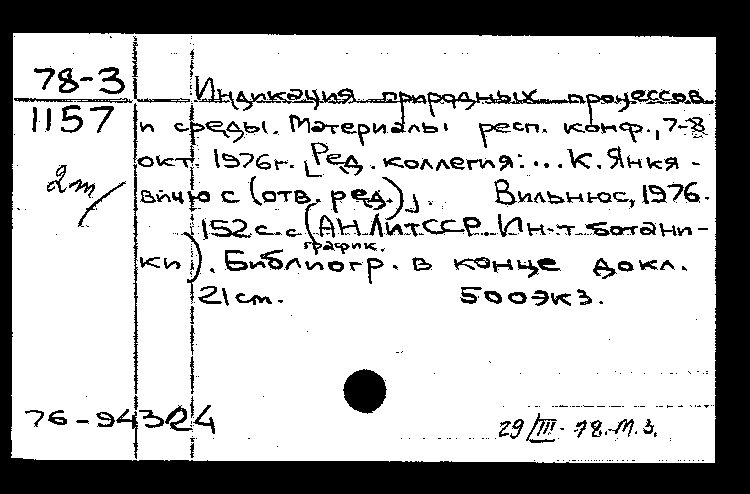 78-3
1157
2т/
Индикация природных процессов
и среды. Материалы респ. конф., 7-8
окт. 1976г. [Ред. коллегия: ... К. Янкя-
вичюс (отв. ред.)]. Вильнюс, 1976.
152 с. с график. (АН ЛитССР. Ин-т ботани-
ки). Библиогр. в конце докл.
21 см. 500 экз.
76-94324
29/III-78. М.З.